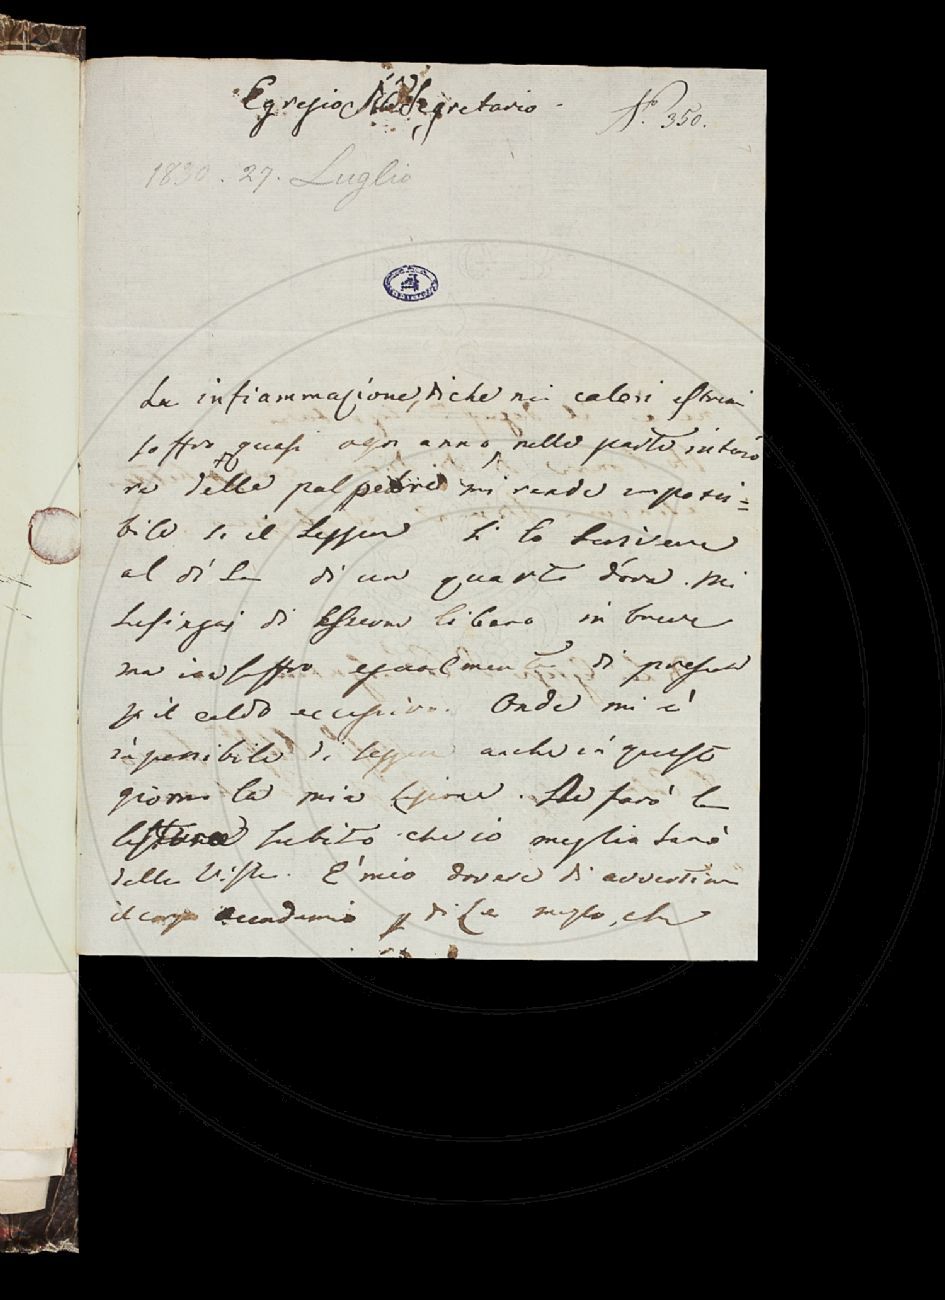 Egregio Sig. Segretario
N.° 350.
1830. 27. Luglio
La infiammazione, di che nei calori estivi
soffro quasi ogni anno, nella parte interio
re delle palpebre mi rende impossi=
bile sì il leggere sì lo scrivere
al di là di un quarto d'ora. Mi
lusingai di essere libero in breve
ma soffro egualmente di presente
pel caldo eccessivo. Onde mi è
impossibile di leggere anche in questo
giorno la mia lezione. Ne farò la
lettura subito che io meglio sarò
della vista. È mio dovere di avvertire
il corpo accademico p di Lei mezzo, che